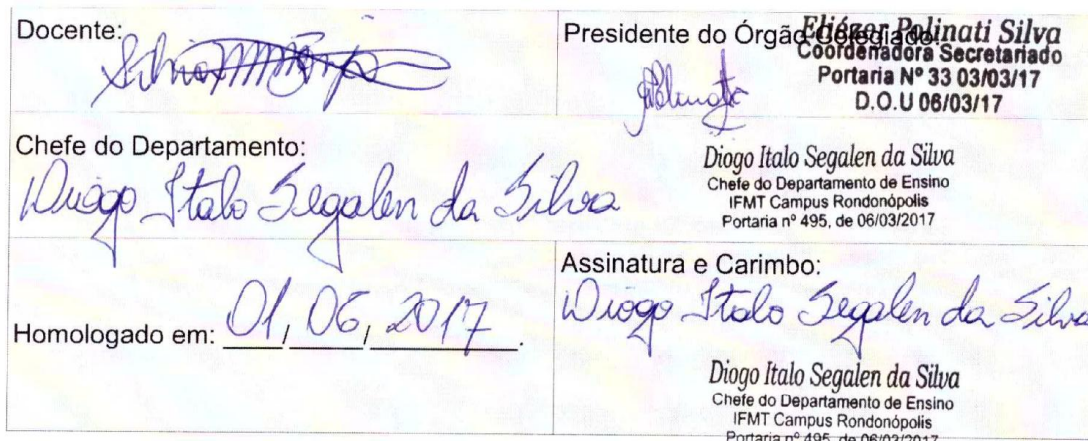 Docente:
Presidente do Órgão Colegiado:
Eliézer Polinati Silva
Coordenadora Secretariado
Portaria Nº 33 03/03/17
D.O.U 06/03/17
Chefe do Departamento:
Diogo Italo Segalen da Silva
Diogo Italo Segalen da Silva
Chefe do Departamento de Ensino
IFMT Campus Rondonópolis
Portaria nº 495, de 06/03/2017
Homologado em: 01, 06, 2017.
Assinatura e Carimbo:
Diogo Italo Segalen da Silva
Diogo Italo Segalen da Silva
Chefe do Departamento de Ensino
IFMT Campus Rondonópolis
Portaria nº 495, de 06/03/2017